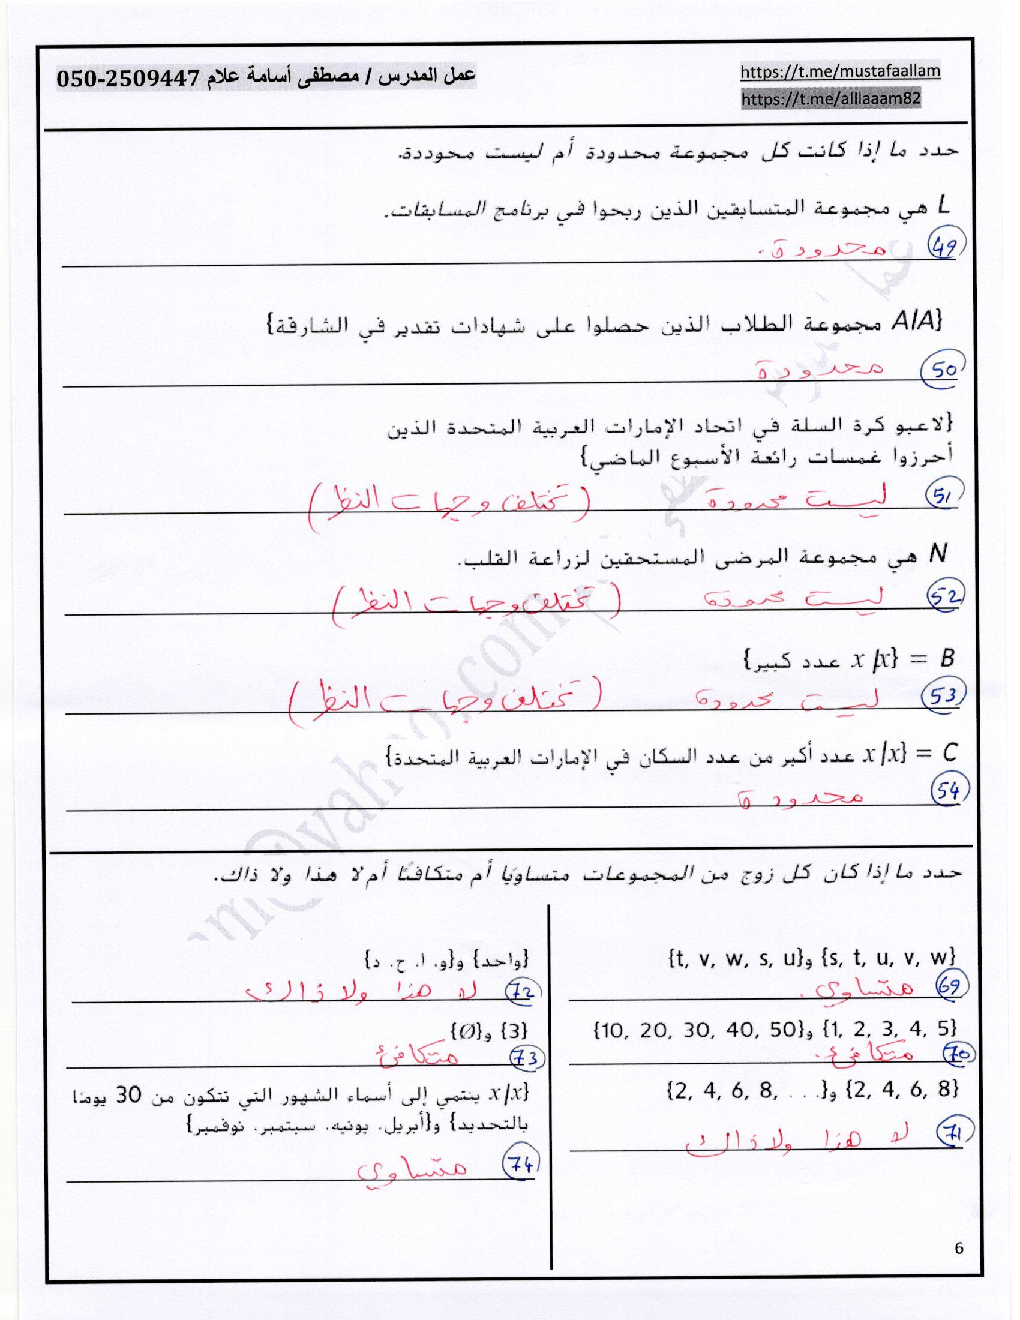 عمل المدرس / مصطفى أسامة علام 050-2509447
https://t.me/mustafaallam
https://t.me/alllaaam82
حدد ما إذا كانت كل مجموعة محدودة أم ليست محوددة.
L هي مجموعة المتسابقين الذين ربحوا في برنامج المسابقات.
49 محدودة.
{A/A مجموعة الطلاب الذين حصلوا على شهادات تقدير في الشارقة}
50 محدودة
{لاعبو كرة السلة في اتحاد الإمارات العربية المتحدة الذين
أحرزوا غمسات رائعة الأسبوع الماضي}
51 ليست محدودة (تختلف وجهات النظر)
N هي مجموعة المرضى المستحقين لزراعة القلب.
52 ليست محدودة (تختلف وجهات النظر)
B = {x |x عدد كبير}
53 ليست محدودة (تختلف وجهات النظر)
C = {x |x عدد أكبر من عدد السكان في الإمارات العربية المتحدة}
54 محدودة
حدد ما إذا كان كل زوج من المجموعات متساويًا أم متكافئًا أم لا هذا ولا ذاك.
{s, t, u, v, w} و{t, v, w, s, u}
69 متساوي.
{1, 2, 3, 4, 5} و{10, 20, 30, 40, 50}
70 متكافئ.
{2, 4, 6, 8} و{2, 4, 6, 8, . . .}
71 لا هذا ولا ذاك
{واحد} و{و، ا، ح، د}
72 لا هذا ولا ذاك
{3} و{Ø}
73 متكافئ
{x/x ينتمي إلى أسماء الشهور التي تتكون من 30 يومًا
بالتحديد} و{أبريل، يونيه، سبتمبر، نوفمبر}
74 متساوي
6